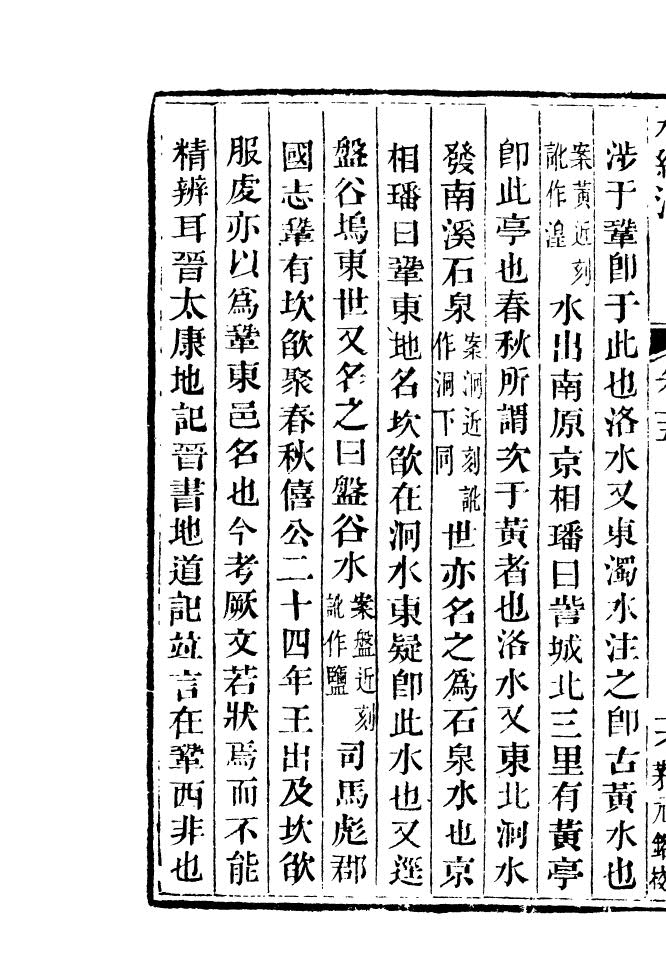 涉于鞏卽于此也洛水又東濁水注之卽古黃水也
案黃近刻訛作湟水出南原京相璠曰訾城北三里有黃亭
卽此亭也春秋所謂次于黃者也洛水又東北泂水
發南溪石泉案泂近刻訛作洞下同世亦名之爲石泉水也京
相璠曰鞏東地名坎欿在泂水東疑卽此水也又逕
盤谷塢東世又名之曰盤谷水案盤近刻訛作鹽司馬彪郡
國志鞏有坎欿聚春秋僖公二十四年王出及坎欿
服虔亦以爲鞏東邑名也今考厥文若狀焉而不能
精辨耳晉太康地記晉書地道記竝言在鞏西非也